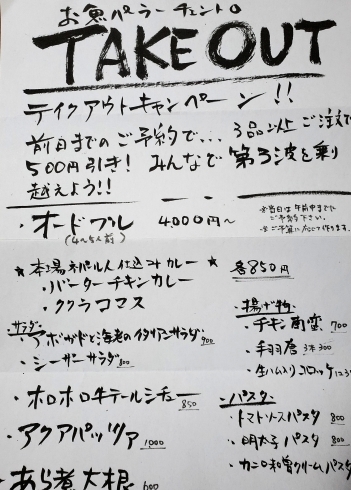 お魚パーラー チェント。
TAKE OUT
テイクアウトキャンペーン!!
前日までのご予約で… 3品以上ご注文で
500円引き! みんなで 第3波を乗り
越えよう!!
・オードブル 4000円〜
(4〜5人前)
※当日は午前中までに
ご予約下さい。
※ご予算に応じて作ります。
★本場ネパール人仕込みカレー★ 各850円
・バターチキンカレー
・ククラコマス
・サラダ・
・アボガドと海老のイタリアンサラダ 900
・シーザーサラダ 800
・ホロホロ牛テールシチュー 850
・アクアパッツァ 1000
・あら煮大根 600
・揚げ物・
・チキン南蛮 700
・手羽唐 3本300
・生ハム入りコロッケ
・パスタ・
・トマトソースパスタ 800
・明太子パスタ 800
・カニ味噌クリームパスタ